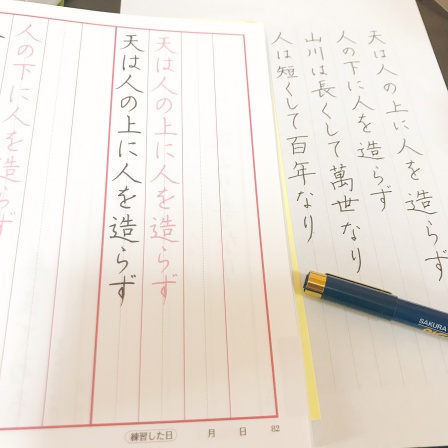 天は人の上に人を造らず
人の下に人を造らず
山川は長くして萬世なり
人は短くして百年なり
天は人の上に人を造らず
天は人の上に人を造らず
人の下に人を造らず
練習した日 月 日 82
SAKURA